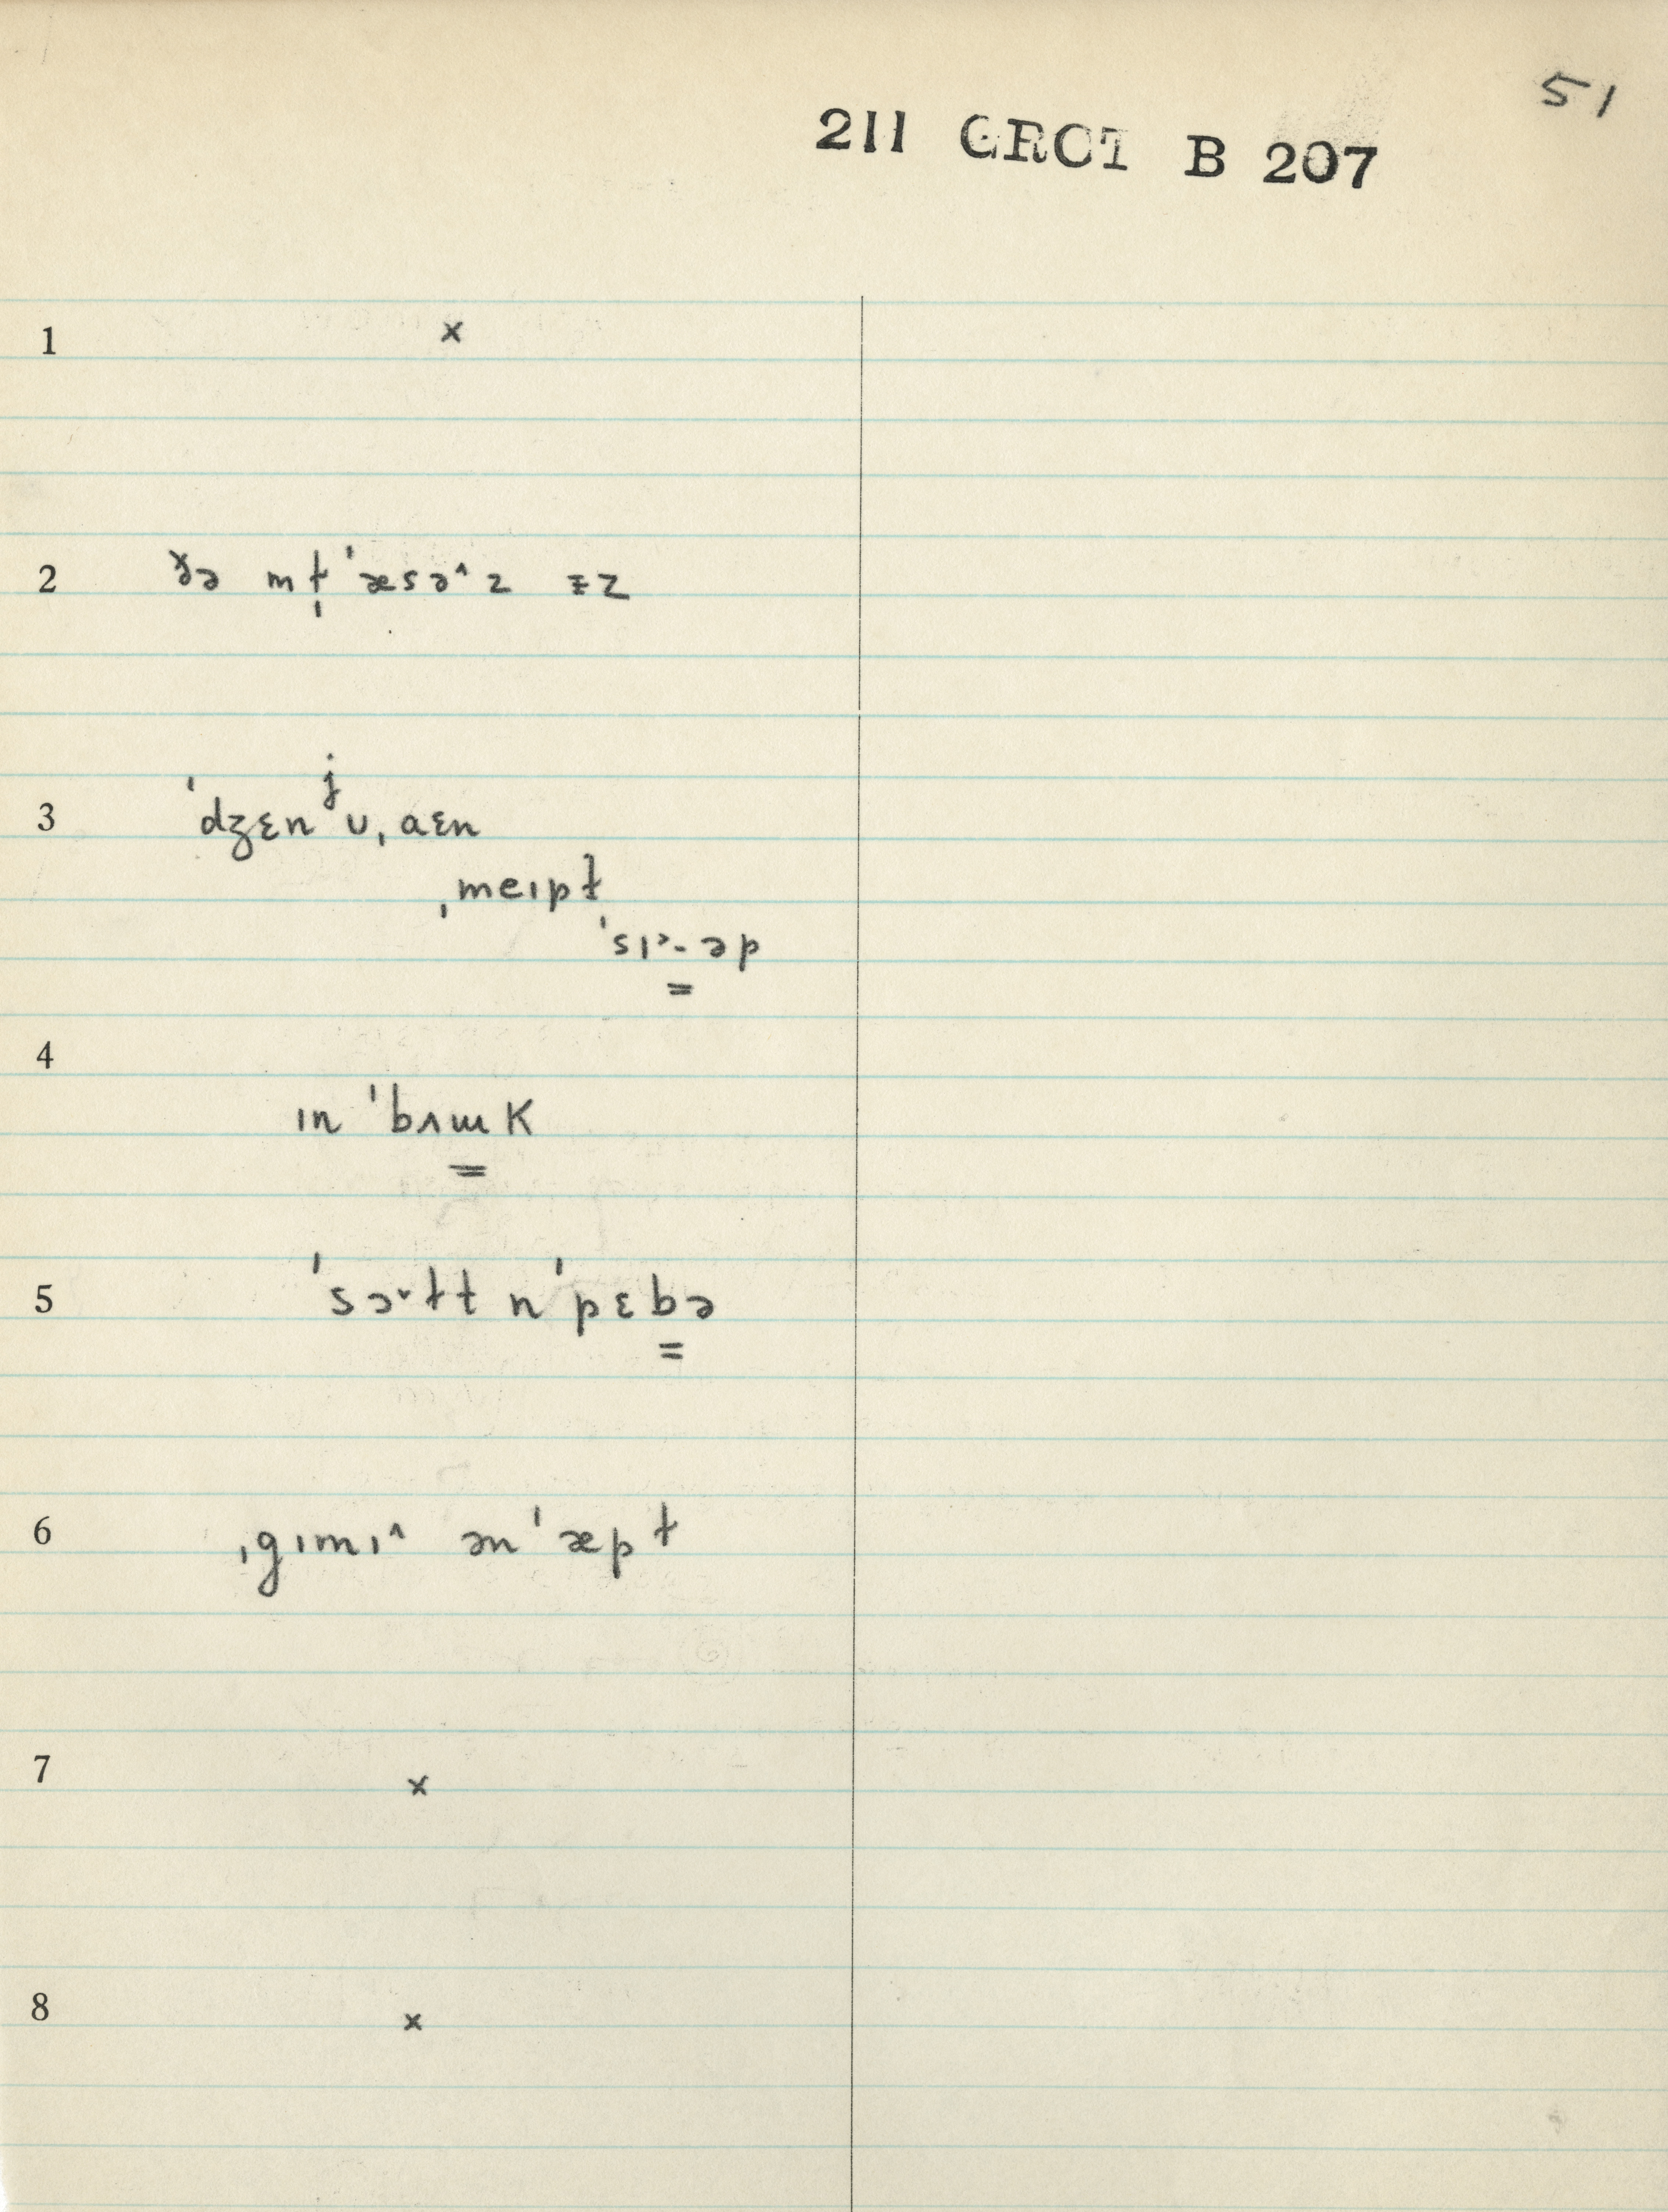 51
211 GRCT B 207
1 x
2 ðə mɫ̩ˈæsəˆz ɨz
3 ˈdʒɛnʲʊˌaɛn
ˌmeɪpɫ
ˈsɪ˃-əp
4
ɪn ˈbʌɯK
5 ˈsɔ˅ɫt nˈpɛbə
6 ˌgɪmɪˆ ənˈæpɫ
7 x
8 x